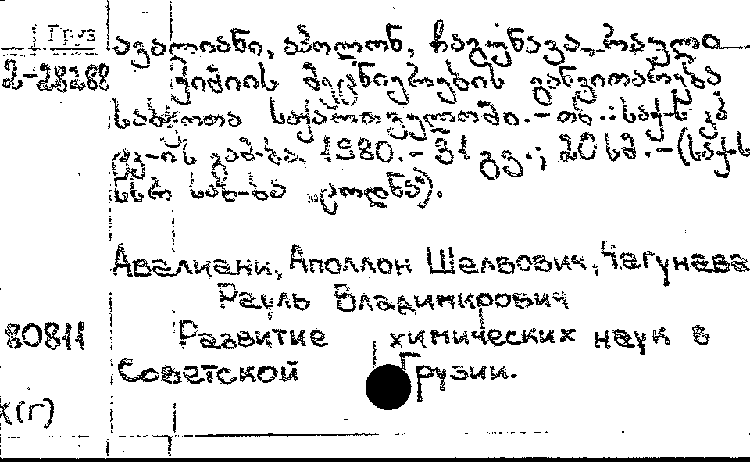 Груз
2-28288
ავალიანი, აპოლონ, ჩაგუნავა, რაული
ქიმიის მეცნიერების განვითარება
საბჭოთა საქართველოში. - თბ.: საქ-ს კპ
ცკ-ის გამ-ბა, 1980. - 91 გვ.; 20 სმ. - (საქ-ს
სსრ საზ-ბა „ცოდნა").
Авалиани, Аполлон Шалвович, Чагунава
Рауль Владимирович
80811
Развитие химических наук в
Советской Грузии.
К(Г)